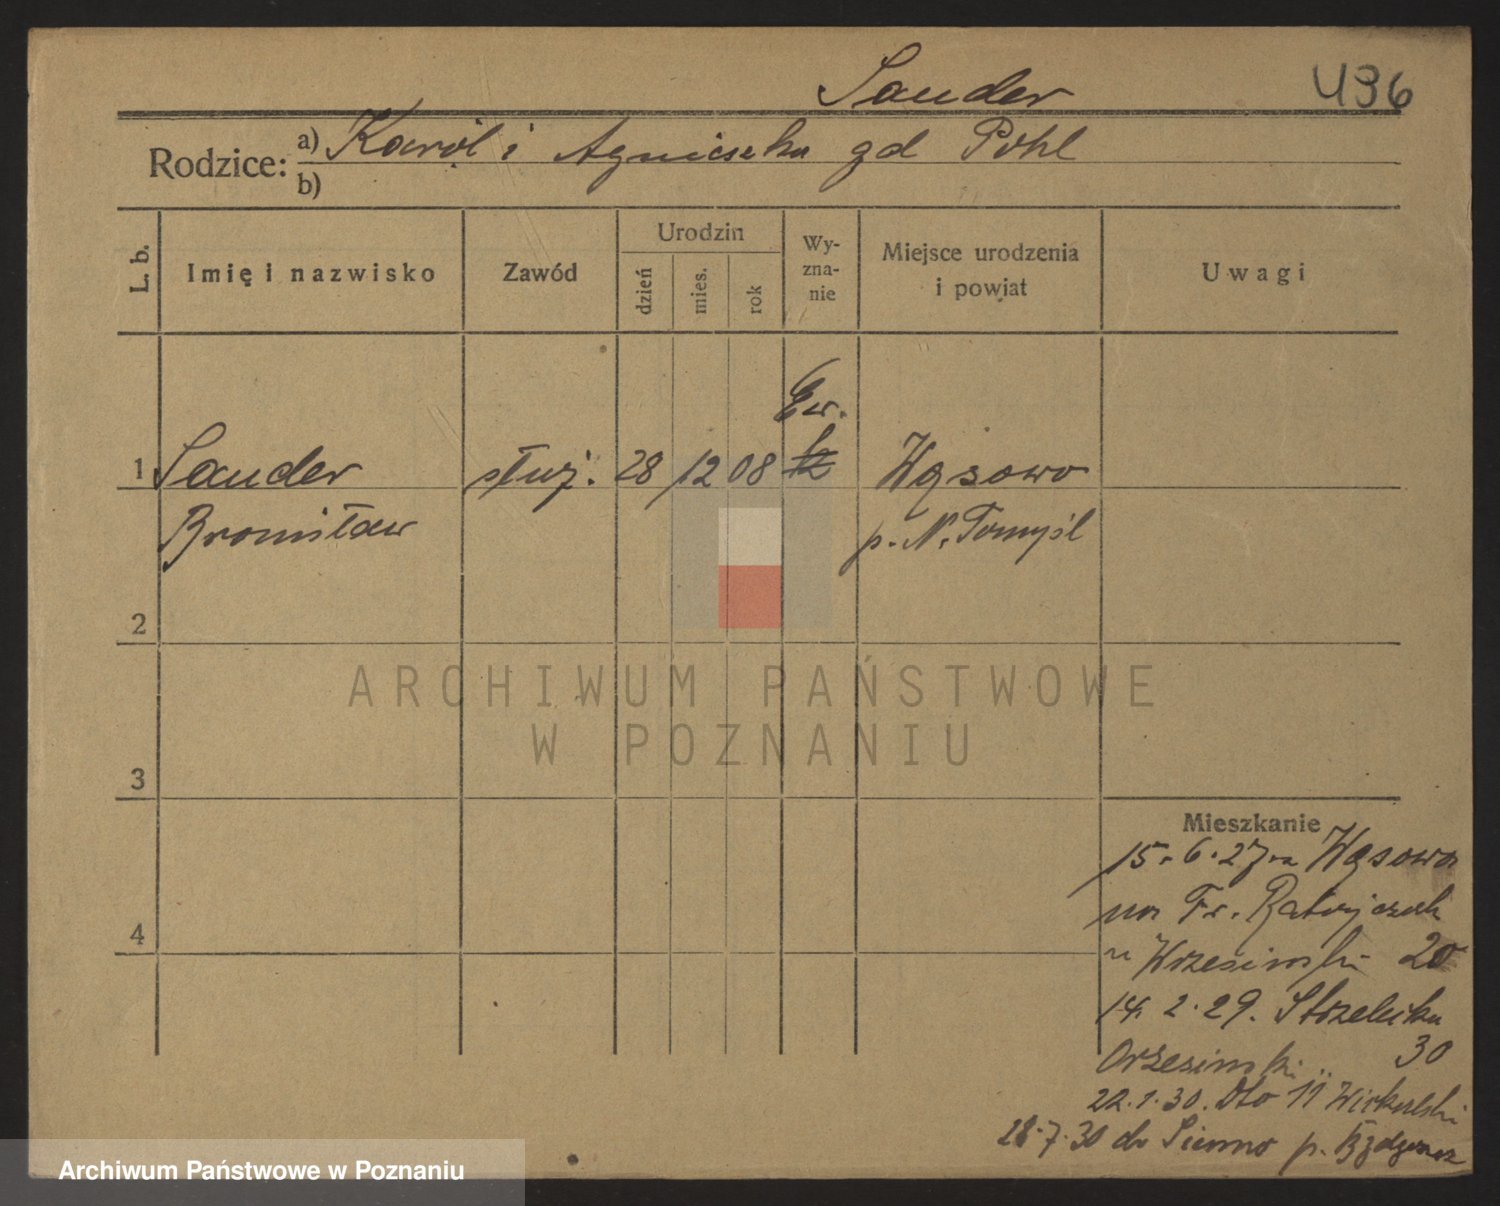 Sander
436
Rodzice: a) Karol i Agnieszka zd Pohl
b)
L. b.
Imię i nazwisko
Zawód
Urodzin
dzień
mies.
rok
Wy-
zna-
nie
Miejsce urodzenia
i powiat
Uwagi
Ew.
1 Sander służ. 28 12 08 Wąsowo
Bronisław p. N. Tomyśl
2
3
4
ARCHIWUM PAŃSTWOWE
W POZNANIU
Mieszkanie
15.6.27 z Wąsowa
na Fr. Ratajczak
u 20
14.2.29. Strzelecka
30
22.1.30. Dto 11
28.7.30 do Sienno p. Bydgoszcz
Archiwum Państwowe w Poznaniu